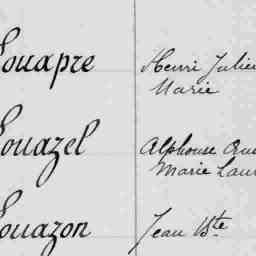 Louapre Henri Julie
Marie
Louazel Alphonse
Marie Lau
Louazon Jean Bte